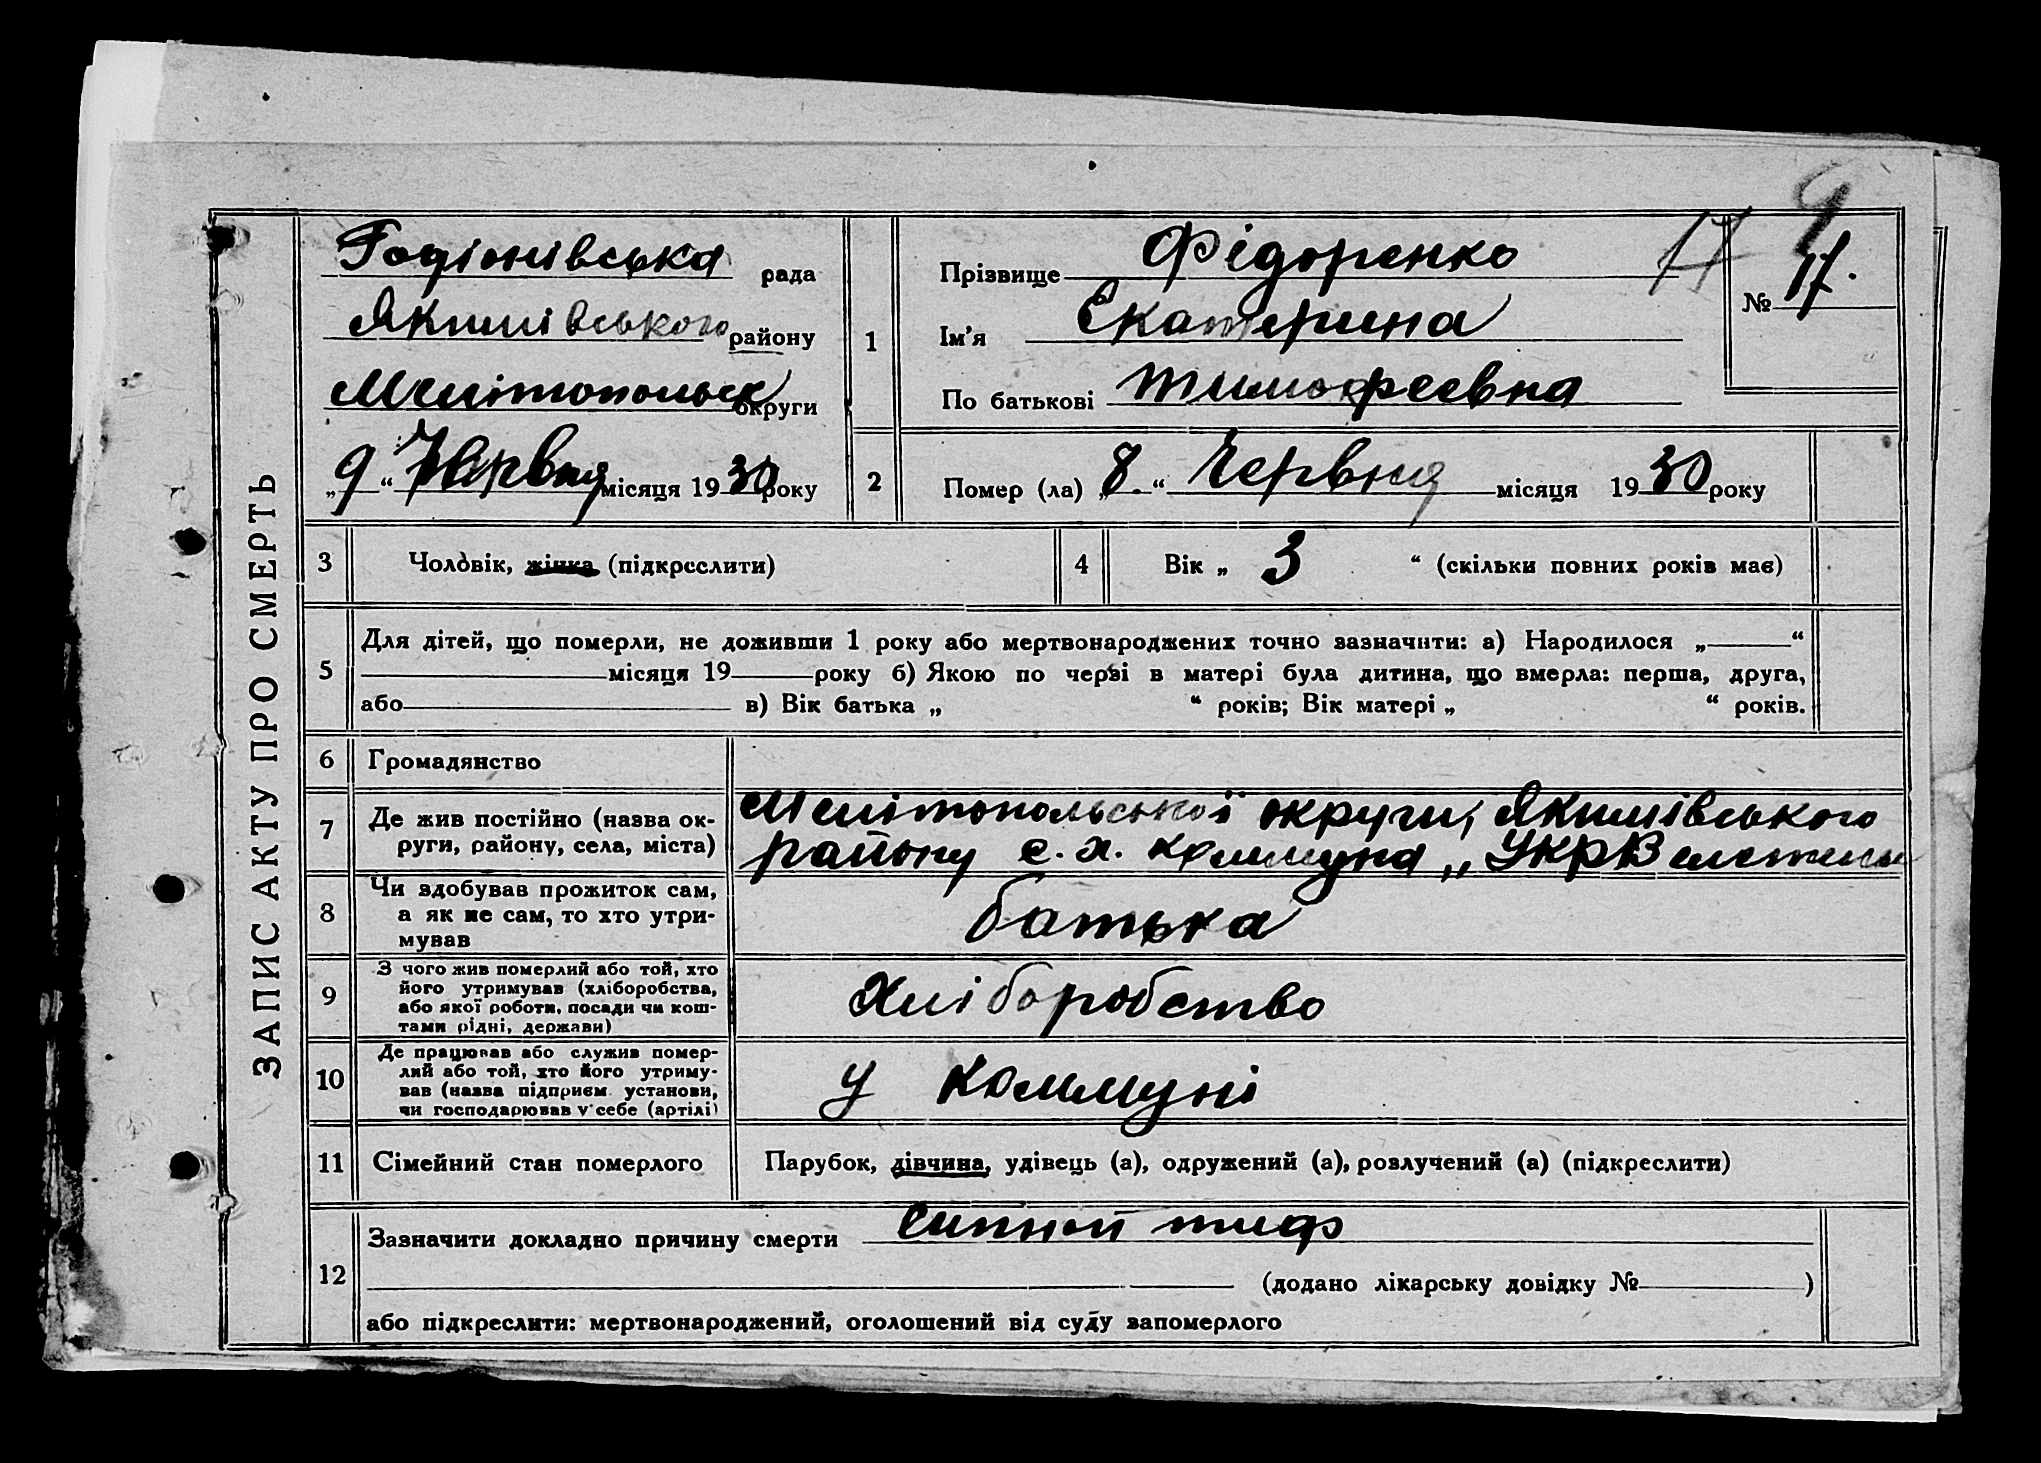 9
17
ЗАПИС АКТУ ПРО СМЕРТЬ
Годіонівська рада
Якимівського району
Мелітопольськ округи
„9“ Червня місяця 1930 року
1
Прізвище Фідоренко
Ім'я Екатерина
По батькові Тимофеевна
№ 17.
2
Помер (ла) „8.“ Червня місяця 1930 року
3 Чоловік, жінка (підкреслити)
4 Вік „ 3 “ (скільки повних років має)
5
Для дітей, що померли, не доживши 1 року або мертвонароджених точно зазначити: а) Народилося „ “
місяця 19 року б) Якою по черзі в матері була дитина, що вмерла: перша, друга,
або в) Вік батька „ “ років; Вік матері „ “ років.
6 Громадянство
7 Де жив постійно (назва ок-
руги, району, села, міста)
Мелітопольської округи, Якимівського
району с. х. коммуна „УКРВ
8 Чи здобував прожиток сам,
а як не сам, то хто утри-
мував
батька
9 З чого жив померлий або той, хто
його утримував (хліборобства,
або якої роботи, посади чи кош-
тами рідні, держави)
Хліборобство
10 Де працював або служив помер-
лий або той, хто його утриму-
вав (назва підприєм. установи,
чи господарював у себе (артілі)
у коммуні
11 Сімейний стан померлого Парубок, дівчина, удівець (а), одружений (а), розлучений (а) (підкреслити)
12
Зазначити докладно причину смерти сипной тиф
(додано лікарську довідку № )
або підкреслити: мертвонароджений, оголошений від суду запомерлого